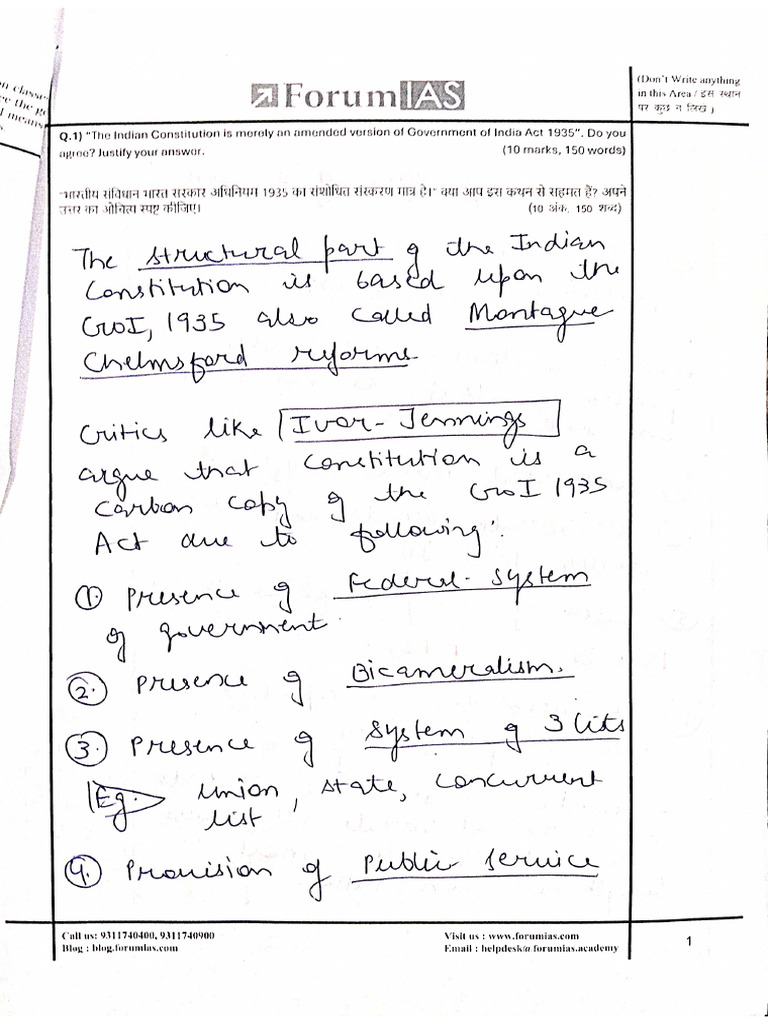 (Don't Write anything
in this Area / इस स्थान
पर कुछ न लिखें )
ForumIAS
Q.1) "The Indian Constitution is merely an amended version of Government of India Act 1935". Do you
agree? Justify your answer. (10 marks, 150 words)
"भारतीय संविधान भारत सरकार अधिनियम 1935 का संशोधित संस्करण मात्र है।" क्या आप इस कथन से सहमत हैं? अपने
उत्तर का औचित्य स्पष्ट कीजिए। (10 अंक, 150 शब्द)
The structural part of the Indian
Constitution is based upon the
GoI, 1935 also called Montague
Chelmsford reforms.
Critics like Ivor-Jennings
argue that constitution is a
carbon copy of the GoI 1935
Act due to following:
1. Presence of Federal-system
of government.
2. Presence of Bicameralism.
3. Presence of system of 3 lists
Eg. union, state, concurrent
list
4. Provision of Public Service
Call us: 9311740400, 9311740900
Blog : blog.forumias.com
Visit us : www.forumias.com
Email : helpdesk@forumias.academy
1